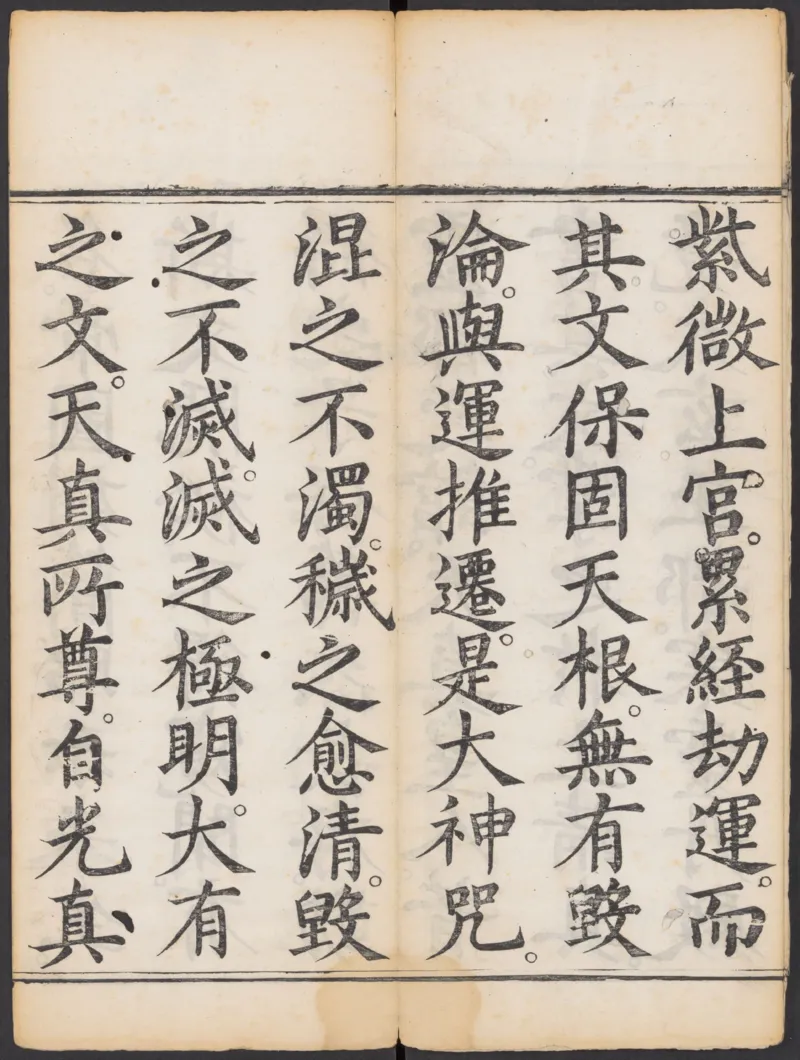 紫微上宫。累経劫運。而
其文保固天根。無有毀
淪。與運推遷。是大神咒。
混之不濁。穢之愈清。毀
之不滅。滅之極明。大有
之文。天真所尊。自光真